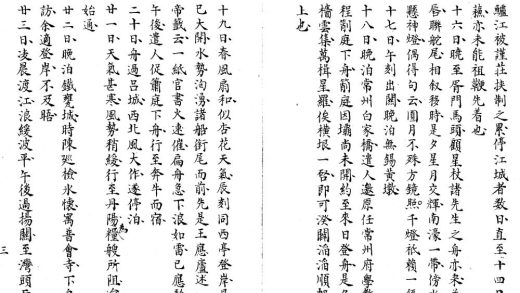 江被謹莊扶制之累停江城者數日直至十四日
蘓亦未能祖觀先看也
十六日曉至胥門馬頭顧星杖諸先生之舟亦来
唇聯舵尾相叙務時是夕星月交輝南濠一帶傍
懸神燈偶得句云圓月不殊方鏡照千燈祇賴一
十七日午刻出關晚泊無錫黄墩
十八日晚泊常州白家橋遣人邀原任常州府學
程蓟庭下舟蓟庭因壩尚未開約至來日登舟是
檣雲集萬楫星羅俟橫垠一啟即可湊闢滔滔順
上也
十九日春風扇和似杏花天氣辰刻同西亭登岸
已大開水勢洶湧諸船銜尾而前先是王應廬述
帝籤云一紙官書火速催扁舟急下浪如雷已應
午後遣人促蓟庭下舟行至奔牛而宿
二十日舟過呂城西北風大作遂停泊
廿一日天氣甚寒風勢稍緩行至丹陽為糧艘所阻
始通
廿二日晚泊鐵甕城時陳廵檢永懷寓普會寺下
訪余適登岸不及晤
廿三日凌晨渡江浪緩波平午後過揚關至灣頭
三